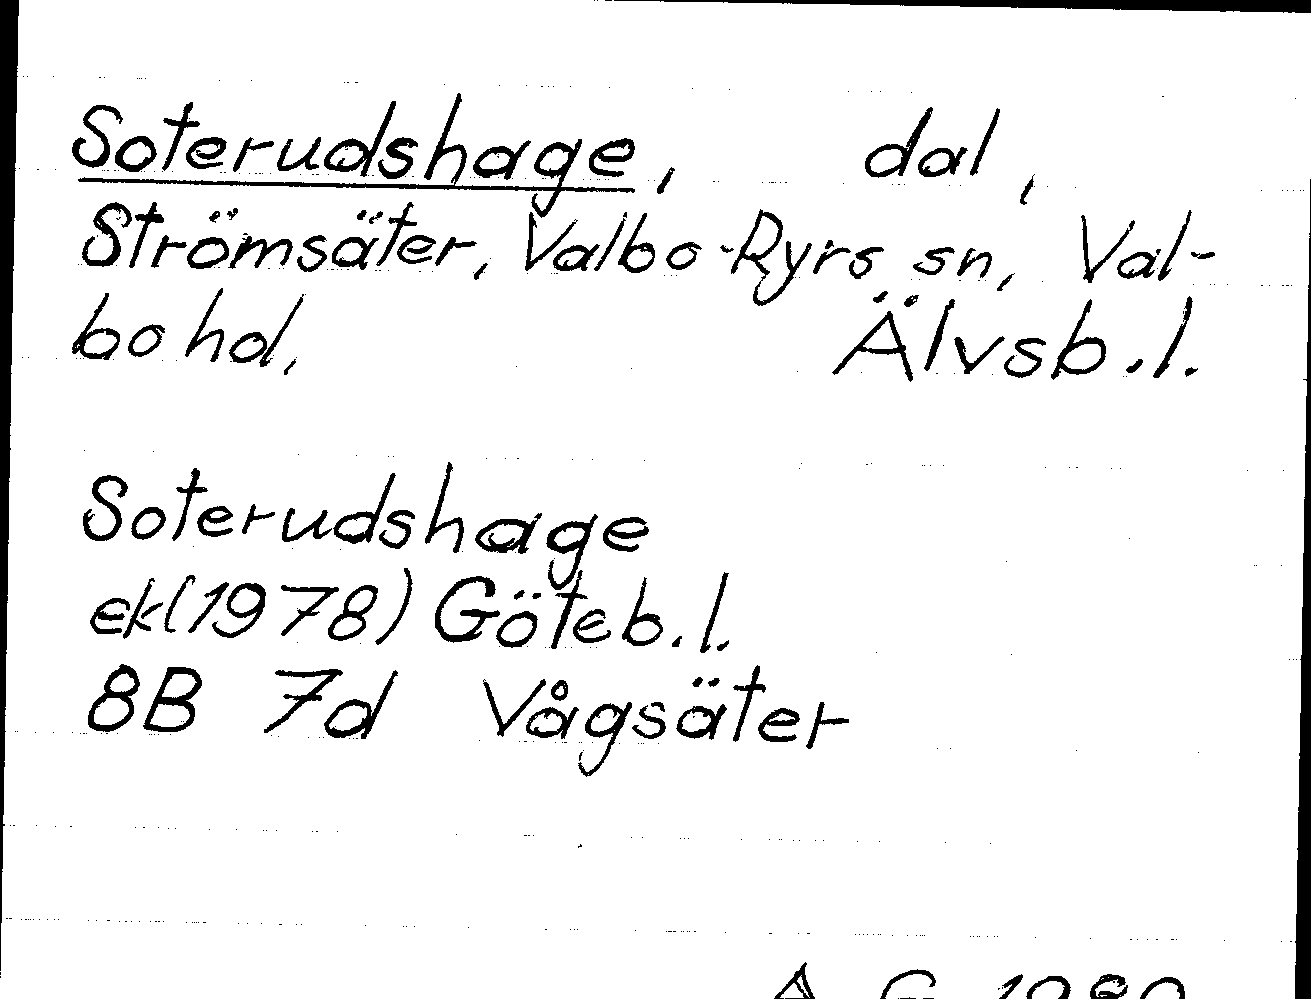 Soterudshage, dal,
Strömsäter, Valbo-Ryrs sn, Val-
bo hd, Älvsb.l.
Soterudshage
ek(1978) Göteb.l.
8B 7d Vågsäter
A G 1980